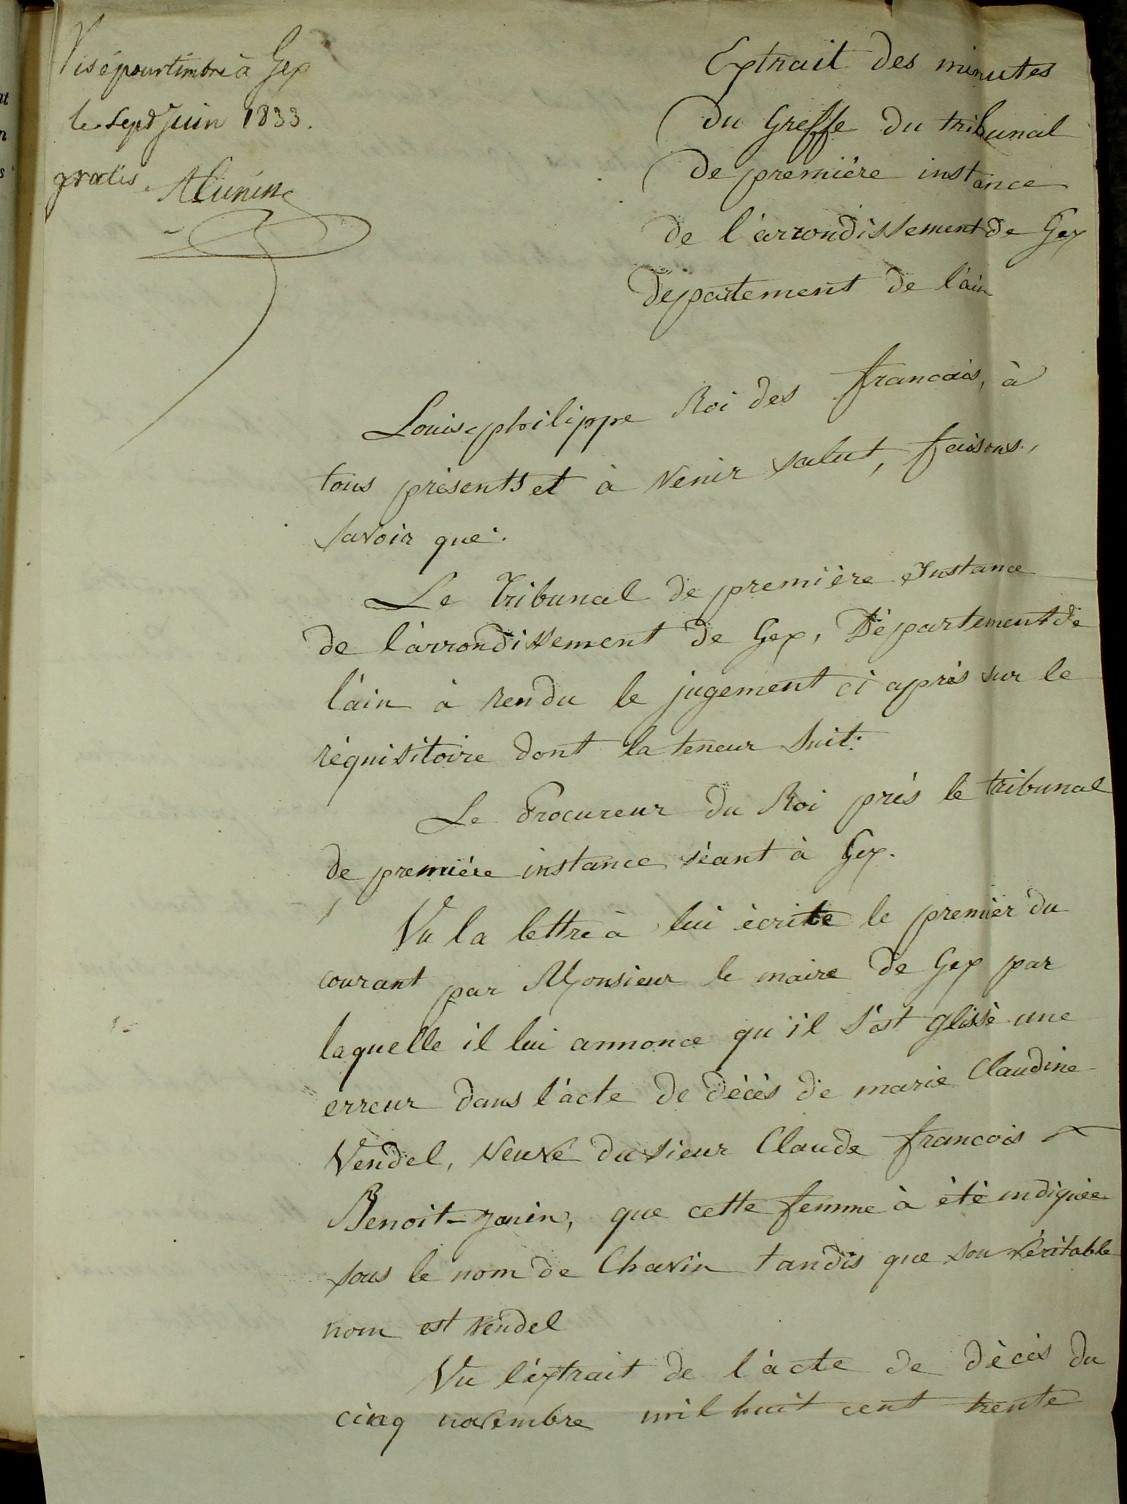 Visé pour timbre à Gex
le Sept Juin 1833.
gratis.
Extrait des minutes
du Greffe du tribunal
de premiére instance
de l'arrondissement de Gex
département de l'ain
Louis philippe Roi des francais, à
tous présents et à venir salut, faisons,
savoir que.
Le Tribunal de première Instance
de l'arrondissement de Gex, Département de
l'ain à rendu le jugement ci après sur le
réquisitoire dont la teneur suit:
Le Procureur du Roi prés le tribunal
de premiére instance séant à Gex.
Vu la lettre à lui écrite le premier du
courant par Monsieur le maire de Gex par
laquelle il lui annonce qu'il s'est glissé une
erreur dans l'acte de décès de marie Claudine
Vendel, veuve du sieur Claude francois
Benoit-Janin, que cette femme à été indiquée
sous le nom de Chavin tandis que son véritable
nom est vendel
Vu l'extrait de l'acte de décès du
cinq novembre mil huit cent trente